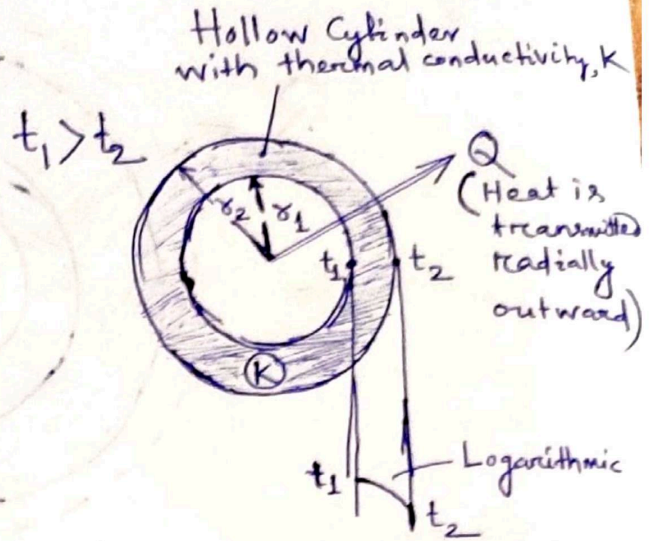 Hollow Cylinder
with thermal conductivity, K
t₁ > t₂
Q
(Heat is
transmitted
radially
outward)
r₂
r₁
t₁
t₂
K
Logarithmic
t₁
t₂